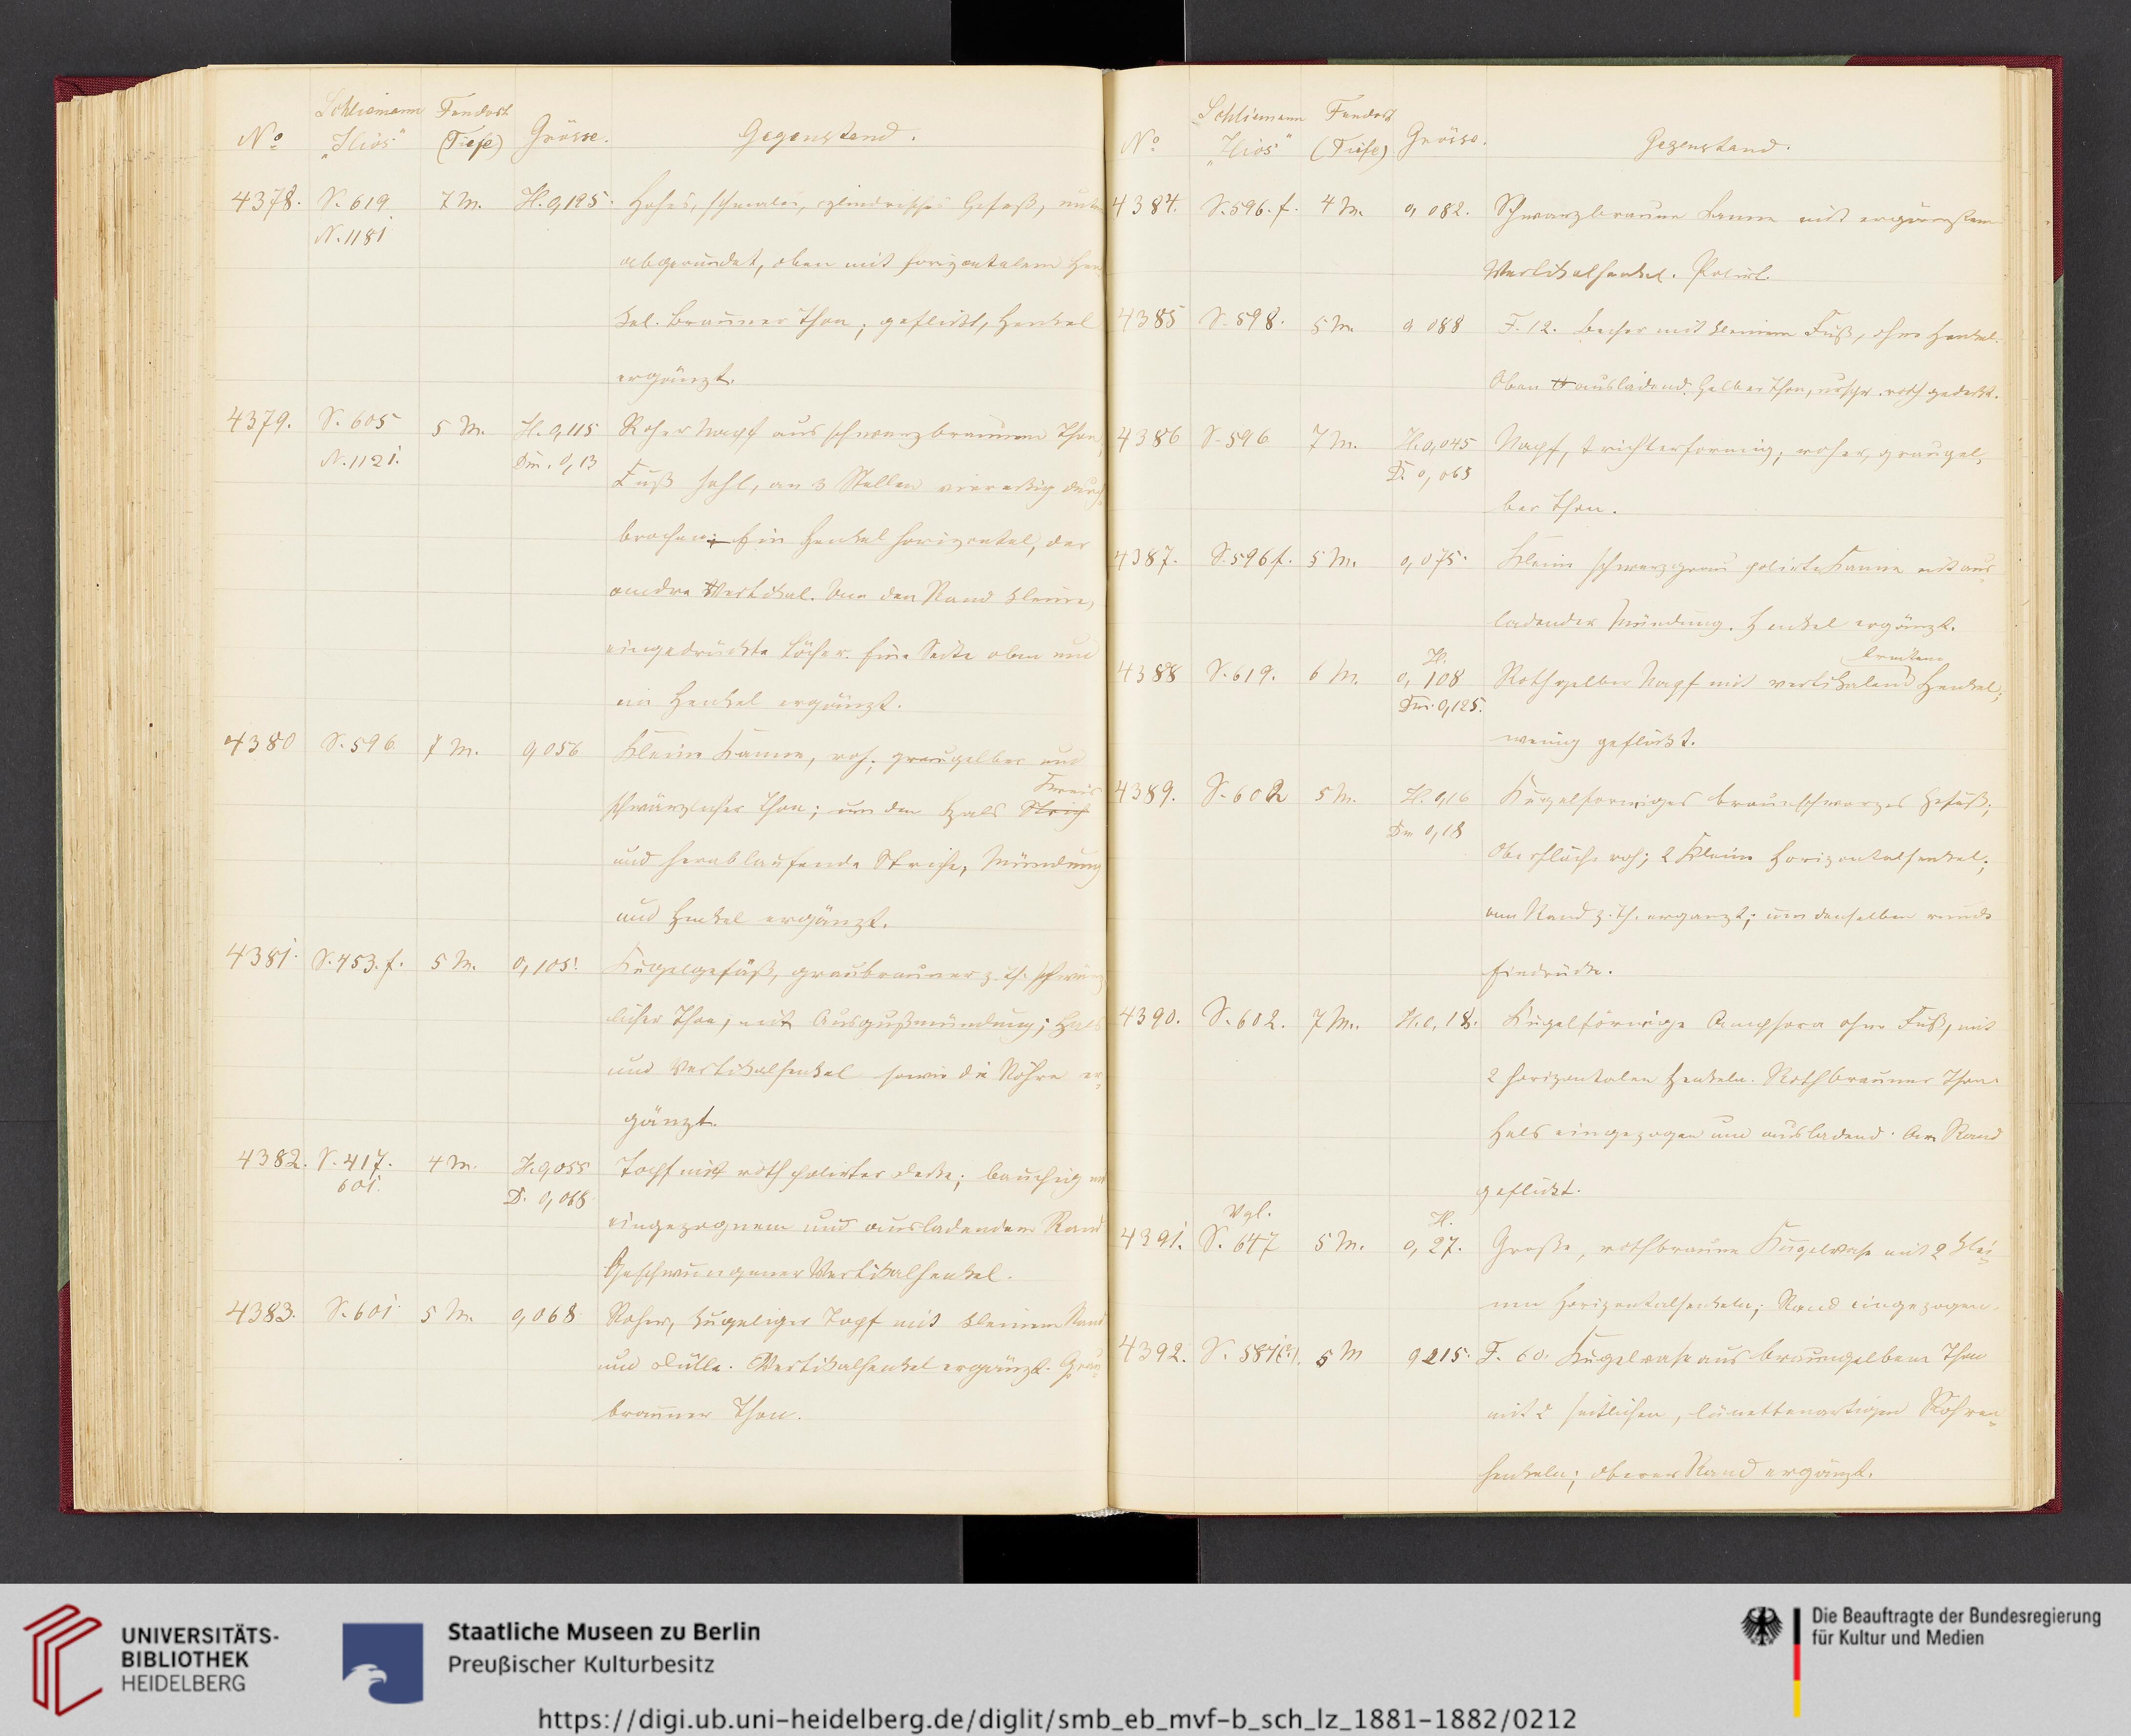 Schliemann Fundort
No „Ilios" (Tiefe) Grösse. Gegenstand.
4378. S. 619 7 M. H. 0,195. Hohes, schmales, cylindrisches Gefäß, unten
N. 1181
abgerundet, oben mit horizontalem Hen-
kel. Brauner Thon; geflickt, Henkel
ergänzt.
4379. S. 605 5 M. H. 0,115 Roher Napf aus schwarzbraunem Thon,
N. 1121. Dm. 0,13
Fuß hohl, an 3 Stellen viereckig durch-
brochen; Ein Henkel horizontal, der
andre Vertikal. Um den Rand kleine,
eingedrückte Löcher. Eine Seite oben und
ein Henkel ergänzt.
4380 S. 596 7 M. 0,056 Kleine Kanne, roh; graugelber und
Kreis
schwärzlicher Thon; um den Hals Strich
und herablaufende Striche, Mündung
und Henkel ergänzt.
4381. S. 453. f. 5 M. 0,105. Kugelgefäß, graubrauner z. Th. schwärz-
licher Thon, mit Ausgußmündung; Hals
und Vertikalhenkel sowie die Röhre er-
gänzt.
4382. S. 417. 4 M. H. 0,055 Topf mit roth polirter Decke; bauchig mit
601. D. 0,068
eingezogenem und ausladendem Rand
Geschwungener Vertikalhenkel.
4383. S. 601. 5 M. 0,068 Roher, kugeliger Topf mit kleinem Rand
und Dülle. Vertikalhenkel ergänzt. Grau-
brauner Thon.
Schliemann Fundort
No „Ilios" (Tiefe) Grösse. Gegenstand.
4384. S. 596. f. 4 M. 0,082. Schwarzbraune Kanne mit ergänztem
Vertikalhenkel. Polirt.
4385 S. 598. 5 M. 0,088 F. 12. Becher mit kleinem Fuß, ohne Henkel.
Oben ausladend. Gelber Thon, urspr. roth gedeckt.
4386 S. 596 7 M. H. 0,045 Napf, trichterförmig; roher, graugel-
D. 0,065
ber Thon.
4387. S. 596 f. 5 M. 0,075. Kleine schwarzgrau polirte Kanne mit aus-
ladender Mündung. Henkel ergänzt.
H. breitem
4388 S. 619. 6 M. 0,108 Rothgelber Napf mit vertikalem Henkel;
Dm. 0,125.
wenig geflickt.
4389. S. 602 5 M. H. 0,16 Kugelformiges braunschwarzes Gefäß;
Dm 0,18
Oberfläche roh; 2 kleine Horizontalhenkel;
am Rand z. Th. ergänzt; um denselben runde
Eindrücke.
4390. S. 602. 7 M. H. 0,18. Kugelförmige Amphora ohne Fuß, mit
2 horizontalen Henkeln. Rothbrauner Thon.
Hals eingezogen und ausladend. Am Rand
geflickt.
Vgl. H.
4391. S. 647 5 M. 0,27. Große, rothbraune Kugelvase mit 2 klei-
nen Horizontalhenkeln; Rand eingezogen.
4392. S. 581(?). 5 M 0,215. F. 60. Kugelvase aus braungelbem Thon
mit 2 seitlichen, lünettenartigen Röhren-
henkeln; oberer Rand ergänzt.
UNIVERSITÄTS-
BIBLIOTHEK
HEIDELBERG
Staatliche Museen zu Berlin
Preußischer Kulturbesitz
Die Beauftragte der Bundesregierung
für Kultur und Medien
https://digi.ub.uni-heidelberg.de/diglit/smb_eb_mvf-b_sch_lz_1881-1882/0212